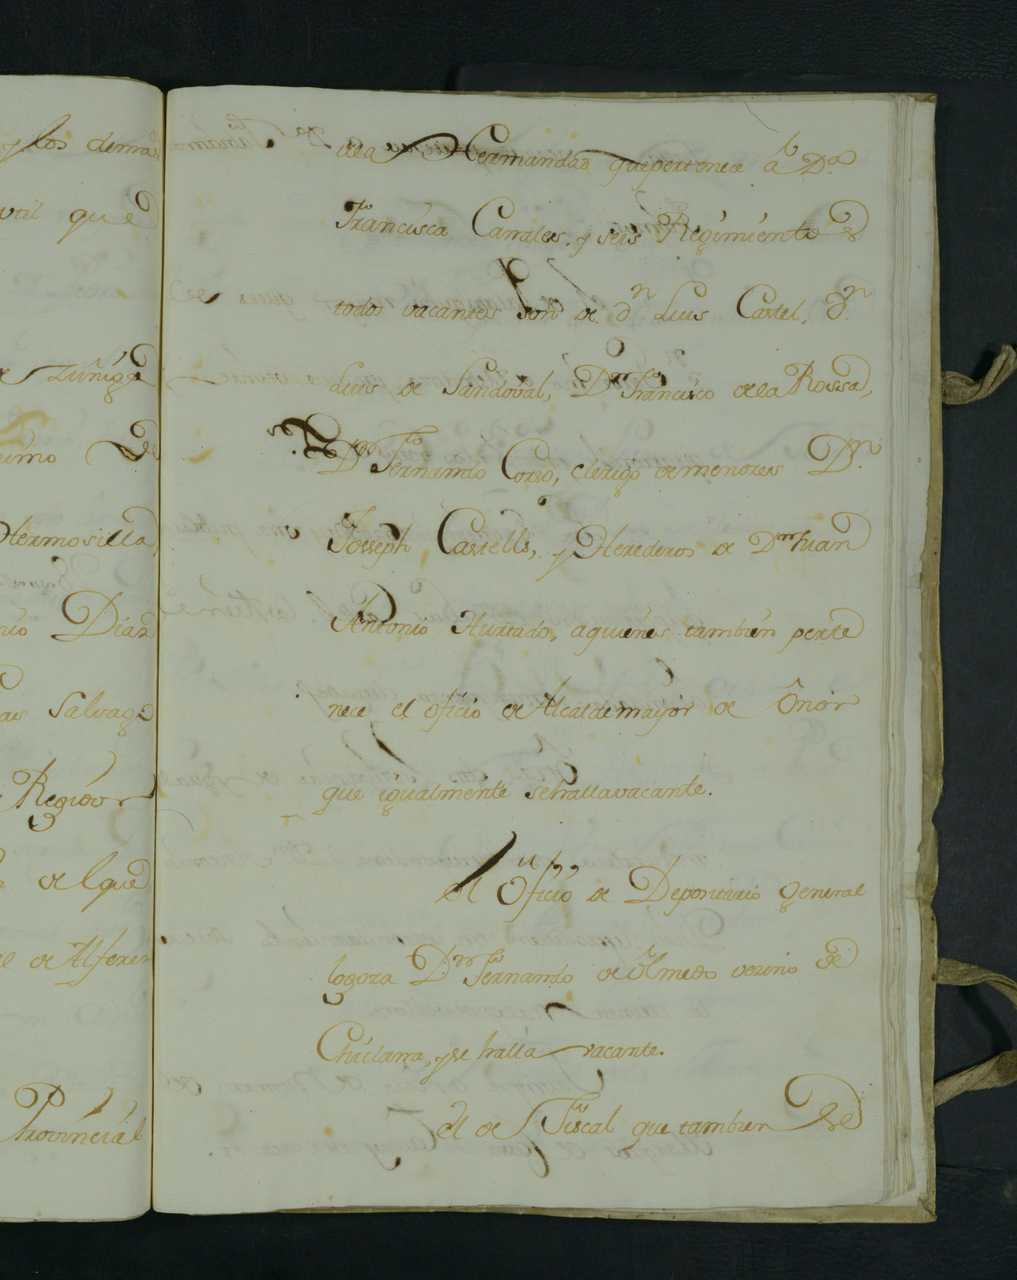 y los demas
util que
de zuñiga
simo
Hermosilla
nio Diaz
as Salvago
Regidor
de el que
el de Alferez
Provincial
dela Hermandad que pertenece a D.ª
Francisca Carrales, y seis Regimientos
todos vacantes son de D.n Luis Castel, D.n
Luis de Sandoval, D.n Francisco dela Rossa,
D.n Fernando Corso, clerigo de menores D.n
Joseph Castells, y Herederos de D.n Juan
Antonio Hurtado, a quienes tambien perte
nece el oficio de Alcalde mayor de Onor
que igualmente se halla vacante.
El Oficio de Depositario general
logoza D.n Fernando de Olmedo vecino de
Chiclana, y se halla vacante.
El de Fiscal que tambien